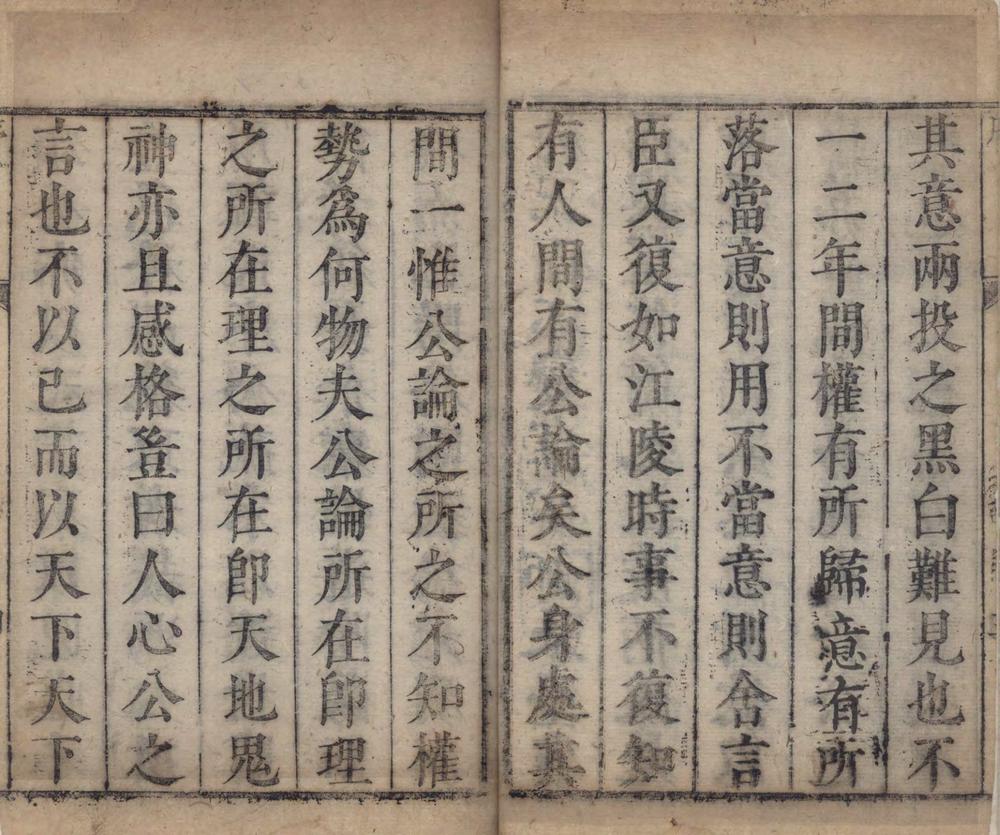 其意兩投之黑白難見也不
一二年間權有所歸意有所
落當意則用不當意則舍言
臣又復如江陵時事不復知
有人間有公論矣公身處其
間一惟公論之所之不知權
勢爲何物夫公論所在卽理
之所在理之所在卽天地鬼
神亦且感格豈曰人心公之
言也不以已而以天下天下